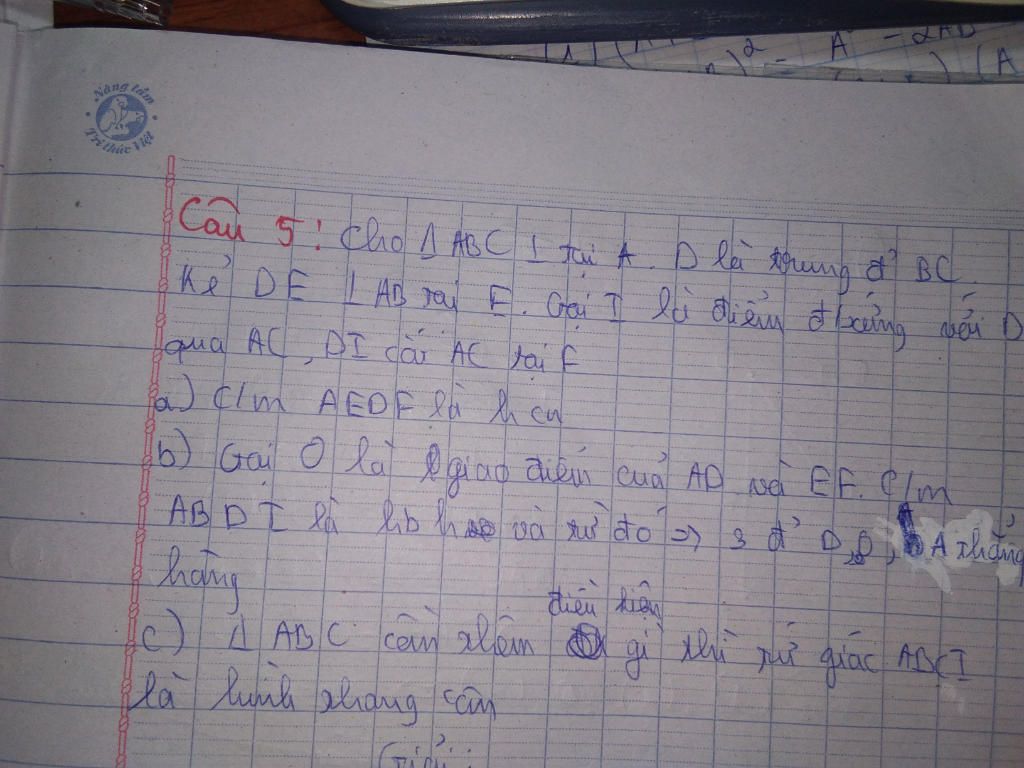 A - 2AB
)² = (A
Nâng tầm
Trí thức Việt
Câu 5: Cho Δ ABC ⊥ tại A. D là trung đ' BC.
Kẻ DE ⊥ AB tại E. Gọi I là điểm đ/xứng với D
qua AC, DI cắt AC tại F
a) C/m AEDF là hcn
b) Gọi O là giao điểm của AD và EF. C/m
ABDI là hbh và từ đó => 3 đ' D, O, A thẳng
hàng
điều kiện
c) Δ ABC cần thêm gì thì tứ giác ABCI
là hình thang cân
Giải: